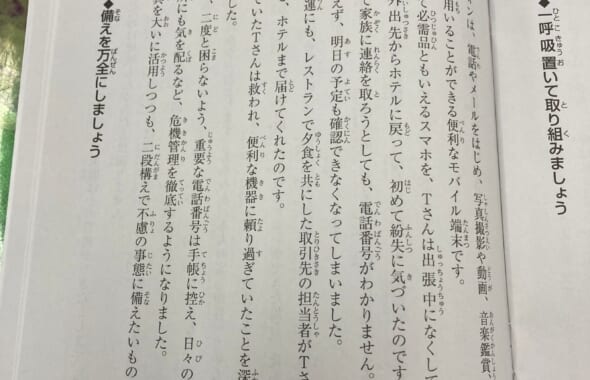 ◆一呼吸置いて取り組みましょう
ンは、電話やメールをはじめ、写真撮影や動画、音楽鑑賞、
用いることができる便利なモバイル端末です。
て必需品ともいえるスマホを、Tさんは出張中になくして
外出先からホテルに戻って、初めて紛失に気づいたのです
て家族に連絡を取ろうとしても、電話番号がわかりません。
えず、明日の予定も確認できなくなってしまいました。
運にも、レストランで夕食を共にした取引先の担当者がTさ
、ホテルまで届けてくれたのです。
ていたTさんは救われ、便利な機器に頼り過ぎていたことを深
した。
、二度と困らないよう、重要な電話番号は手帳に控え、日々の
にも気を配るなど、危機管理を徹底するようになりました。
を大いに活用しつつも、二段構えで不慮の事態に備えたいもの
◆備えを万全にしましょう